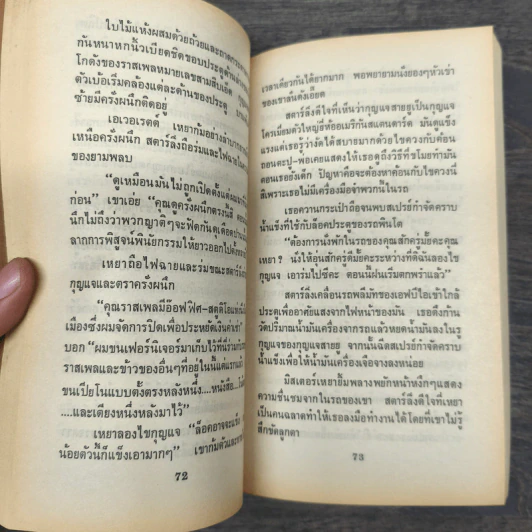 ใบไม้แห้งผสมด้วยถ้วยและถาดกระดาษ
กันหนาหกนิ้วเบียดชิดขอบประตูด้านล่าง
โกดังของราสเพลหมายเลขสามสิบเอ็ด
ตัวเบ้อเริ่มคล้องแต่ละด้านของประตู
ซ้ายมีครั่งผนึกติดอยู่
เอเวอเรตต์ เหยาก้มอย่างลำบาก
เหนือครั่งผนึก สตาร์ลิ่งถือร่มและไฟฉาย
ของยามพลบ
"ดูเหมือนมันไม่ถูกเปิดตั้งแต่ผม
ก่อน" เขาเอ่ย "คุณดูครั่งผนึกตรงนี้สิ
นึกไม่ถึงว่าพวกญาติๆจะฟัดกัน
ลากการพิสูจน์พินัยกรรมให้ยาวออกไป
เหยาถือไฟฉายและร่มขณะสตาร์ลิ่ง
กุญแจและตราครั่งผนึก
"คุณราสเพลมีอ๊อฟฟิศ-สตูดิโอ
เมืองซึ่งผมจัดการปิดเพื่อประหยัดเงินค่าเช่า"
บอก "ผมขนเฟอร์นิเจอร์มาเก็บไว้ที่นี่
ราสเพลและข้าวของอื่นๆที่อยู่ในนี้แต่แรก
ขนเปียโนแบบตั้งตรงหลังหนึ่ง....หนังสือ..
....และเตียงหนึ่งหลังมาไว้"
เหยาลองไขกุญแจ "ล็อคอาจจะแข็ง
น้อยตัวนี้ก็แข็งเอามากๆ" เขาก้มตัวและ
72
เวลาเดียวกันได้ยากมาก พอพยายามนั่งยองๆหัวเข่า
ของเขาลั่นดังเอี๊ยด
สตาร์ลิ่งดีใจที่เห็นว่ากุญแจสายยูเป็นกุญแจ
โครเมี่ยมตัวใหญ่ยี่ห้ออเมริกันสแตนดาร์ด มันดูแข็ง
แรงแต่เธอรู้ว่างัดได้สบายมากด้วยไขควงกับค้อน
ถอนตะปู-พ่อเคยแสดงให้เธอดูถึงวิธีที่ขโมยทำมัน
ตอนเธอยังเด็ก ปัญหาคือจะต้องหาค้อนกับไขควงนี่
สิเพราะเธอไม่มีเครื่องมือจำพวกนี้ในรถ
เธอควานกระเป๋าถือจนพบสเปรย์กำจัดคราบ
น้ำแข็งที่ใช้กับล็อคประตูของรถพินโต
"ต้องการนั่งพักในรถของคุณสักครู่มั้ยคะคุณ
เหยา ? นั่งให้อุ่นสักครู่ดีมั้ยคะระหว่างที่ดิฉันลองไข
กุญแจ เอาร่มไปซีคะ ตอนนี้ฝนเริ่มตกพรำแล้ว"
สตาร์ลิ่งเคลื่อนรถพลีมัทของเอฟบีไอเข้าใกล้
ประตูเพื่ออาศัยแสงจากไฟหน้าของมัน เธอดึงก้าน
วัดปริมาณน้ำมันเครื่องจากรถแล้วหยดน้ำมันลงในรู
กุญแจของกุญแจสายยู จากนั้นฉีดสเปรย์กำจัดคราบ
น้ำแข็งเพื่อให้น้ำมันเครื่องเจือจางลงหน่อย
มิสเตอร์เหยายิ้มพลางพยักหน้าหงึกๆแสดง
ความชื่นชมจากในรถของเขา สตาร์ลิ่งดีใจที่เหยา
เป็นคนฉลาดทำให้เธอลงมือทำงานได้โดยที่เขาไม่รู้
สึกขัดลูกตา
73